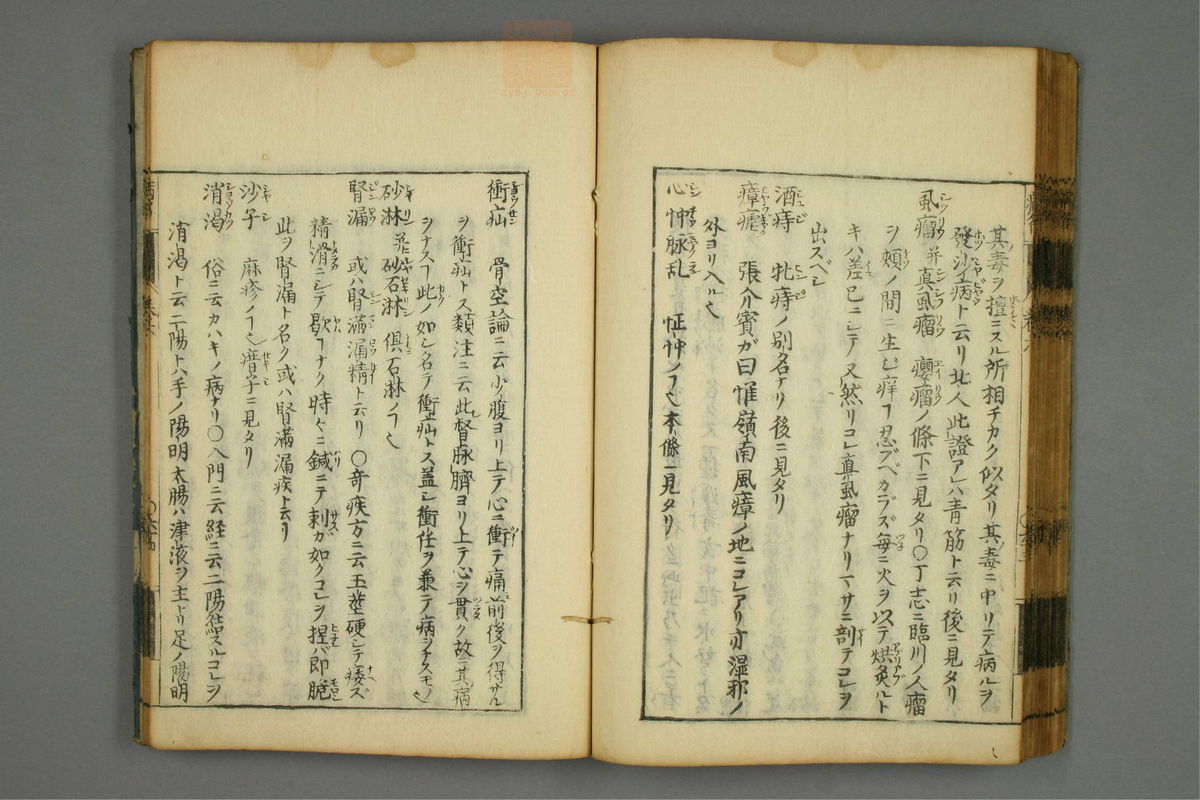 其毒ヲ擅ニスル所相チカク似タリ其毒ニ中リテ病ルヲ
發沙病ト云リ北人此證アレハ青筋ト云リ後ニ見タリ
風瘤 并真風瘤 癭瘤ノ條下ニ見タリ○丁志ニ臨川ノ人瘤
ヲ頰ノ間ニ生シ痒コ忍ブベカラズ毎ニ火ヲ以テ烘灸ルト
キハ差已ニシテ又然リコレ真風瘤ナリマサニ剖テコレヲ
出スベシ
酒痔 牝痔ノ別名ナリ後ニ見タリ
瘴瘧 張介賓ガ曰惟嶺南風瘴ノ地ニコレアリ亦湿邪ノ
外ヨリ入ル也
心忡脉乱 怔忡ノコ也本條ニ見タリ
衝疝 骨空論ニ云少腹ヨリ上テ心ニ衝テ痛前後ヲ得サル
ヲ衝疝トス類注ニ云此督脉臍ヨリ上テ心ヲ貫ク故ニ其病
ヲナスコ此ノ如シ名テ衝疝トス蓋シ衝任ヲ兼テ病ヲナスモノ也
砂淋 并砂石淋 倶石淋ノコ也
腎漏 或ハ腎滿漏精ト云リ ○奇疾方ニ云玉莖硬シテ痿ズ
精滑ニシテ歇コナク時々ニ鍼ニテ刺カ如クコレヲ捏バ即脆
此ヲ腎漏ト名ク或ハ腎滿漏疾ト云リ
沙子 麻疹ノコ也瘄子ニ見タリ
消渇 俗ニ云カハキノ病ナリ○入門ニ云経ニ云二陽結スルコレヲ
消渇ト云二陽トハ手ノ陽明大腸ハ津液ヲ主トリ足ノ陽明